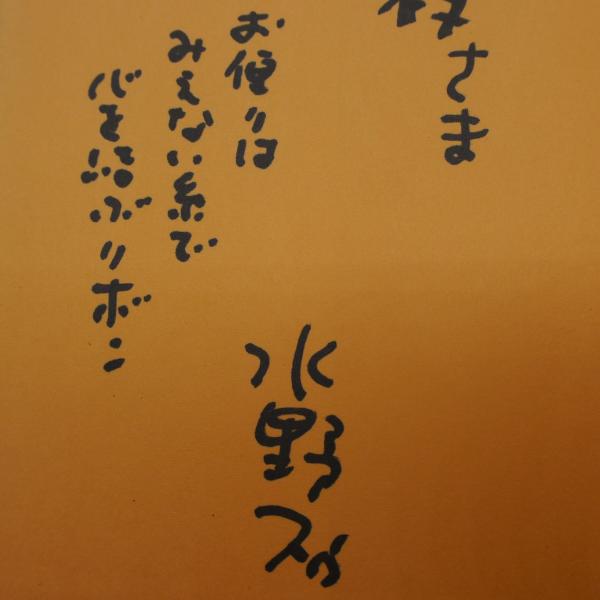 さま
お便りは
みえない糸で
心を結ぶリボン
水野スウ